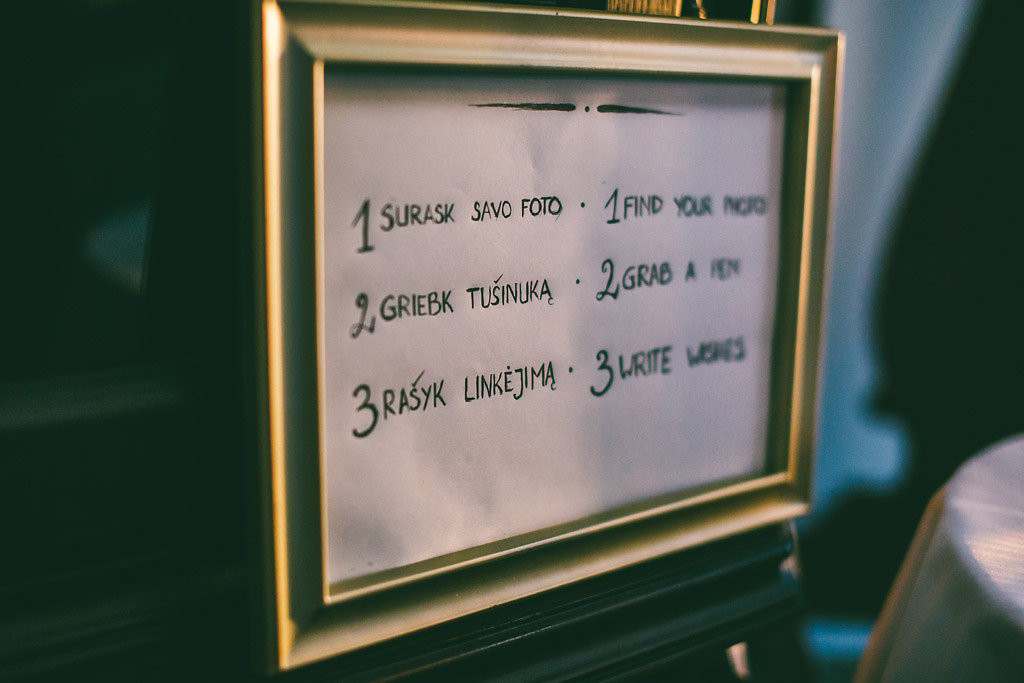 1 SURASK SAVO FOTO · 1 FIND YOUR PHOTO
2 GRIEBK TUŠINUKĄ · 2 GRAB A PEN
3 RAŠYK LINKĖJIMĄ · 3 WRITE WISHES